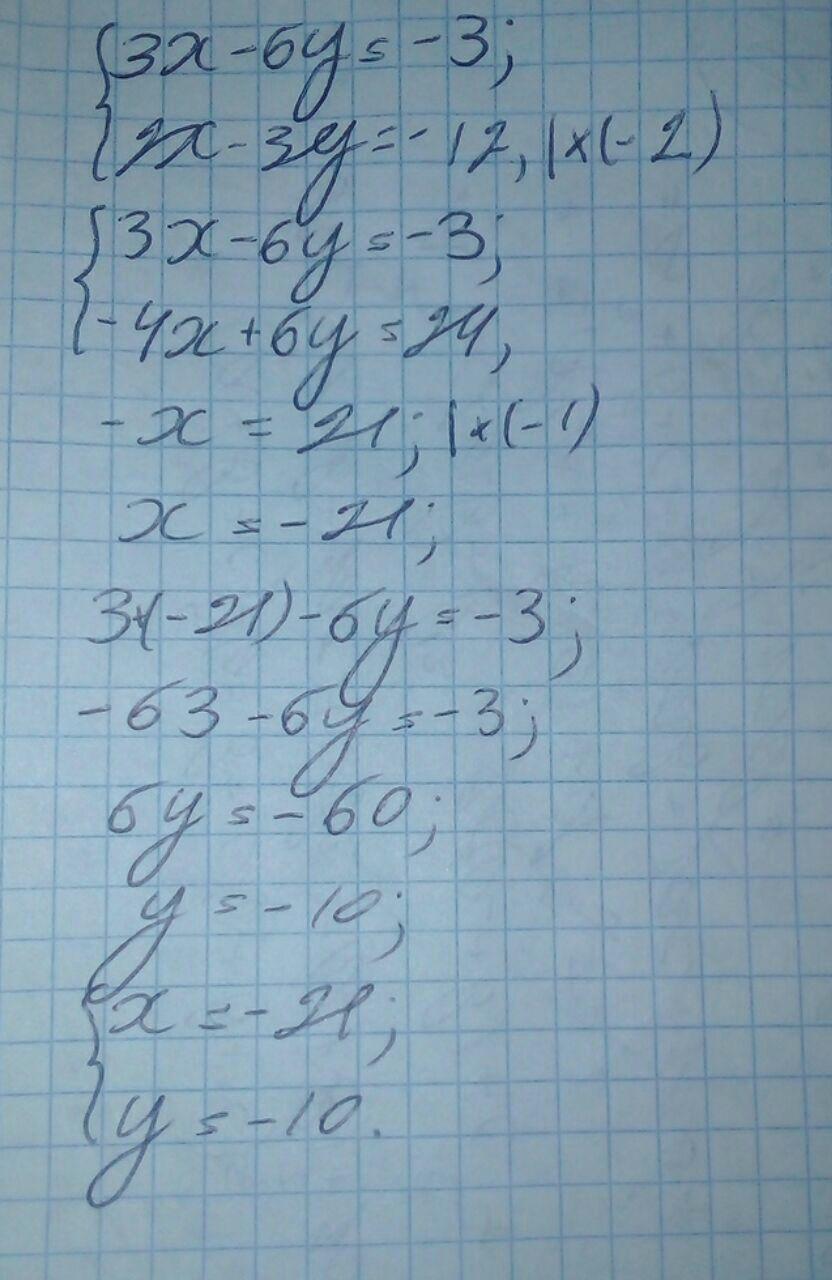 {3x - 6y = -3;
2x - 3y = -12, | × (-2)
{3x - 6y = -3;
-4x + 6y = 24,
-x = 21; | × (-1)
x = -21;
3·(-21) - 6y = -3;
-63 - 6y = -3;
6y = -60;
y = -10;
{x = -21;
y = -10.